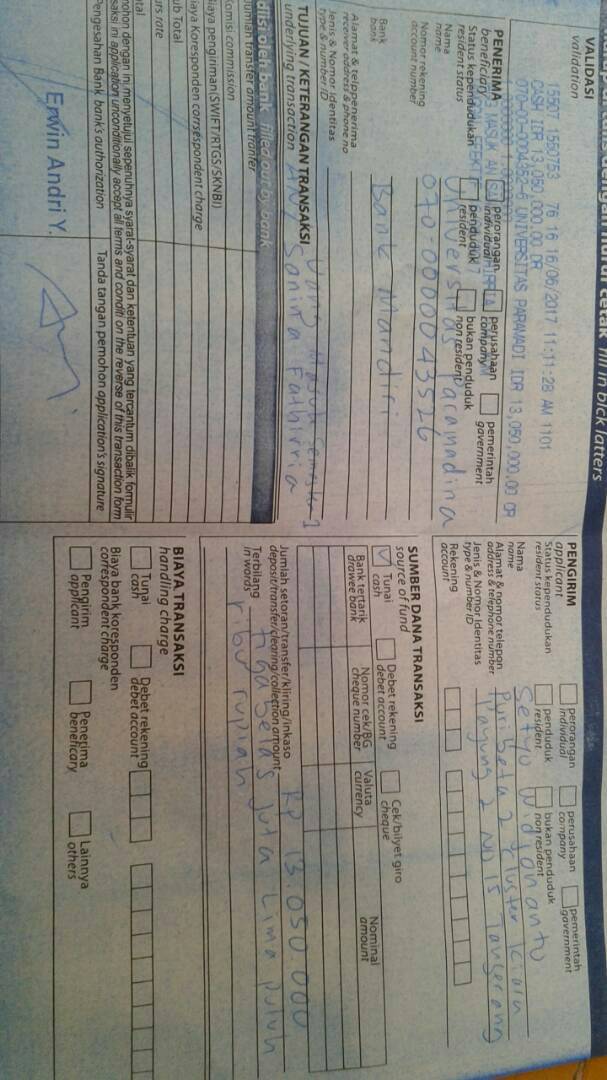 huruf cetak fill in bick latters
VALIDASI
validation
15507 1550753 76 16 16/06/2017 11:11:28 AM 1101
CASH IDR 13,050,000.00 DR
UNIVERSITAS PARAMADI IDR 13,050,000.00 CR
PENERIMA
beneficiery
perorangan
individual
perusahaan
company
pemerintah
government
Status kependudukan
resident status
penduduk
resident
bukan penduduk
non resident
Nama
name
Universitas Paramadina
Nomor rekening
account number
070-0000043526
Bank
bank
Bank Mandiri
Alamat & telppenerima
receiver address & phone no
Jenis & Nomor Identitas
type & number ID
TUJUAN / KETERANGAN TRANSAKSI
underlying transaction
Semester 1
Fathirria
diisi oleh bank filled out by bank
jumlah transfer amount tranfer
Komisi commission
Biaya pengiriman(SWIFT/RTGS/SKNBI)
Biaya Koresponden corresespondent charge
Sub Total
rate
mohon dengan ini menyetujui sepenuhnya syarat-syarat dan ketentuan yang tercantum dibalik formulir
application unconditionally accept all terms and condit on the reverse of this transaction form
Pengesahan Bank bank's authorization
Tanda tangan pemohon application's signature
Erwin Andri Y.
PENGIRIM
applicant
perorangan
individual
perusahaan
company
pemerintah
government
Status kependudukan
resident status
penduduk
resident
bukan penduduk
non resident
Nama
name
Setyo Widjonanto
Alamat & nomor telepon
address & telephone number
Puri beta 2 cluster kiara
Jenis & Nomor Identitas
type & number ID
Payung 2 No 15 Tangerang
Rekening
account
SUMBER DANA TRANSAKSI
source of fund
Tunai
cash
Debet rekening
debet account
Cek/bilyet giro
cheque
Bank tertarik
drawee bank
Nomor cek/BG
cheque number
Valuta
currency
Nominal
amount
Jumlah setoran/transfer/kliring/inkaso
deposit/transfer/clearing/collection amount
Rp 13.050.000
Terbilang
in words
tiga belas juta Lima puluh
ribu rupiah
BIAYA TRANSAKSI
handling charge
Tunai
cash
Debet rekening
debet account
Biaya bank koresponden
correspondent charge
Pengirim
applicant
Penerima
beneficary
Lainnya
others